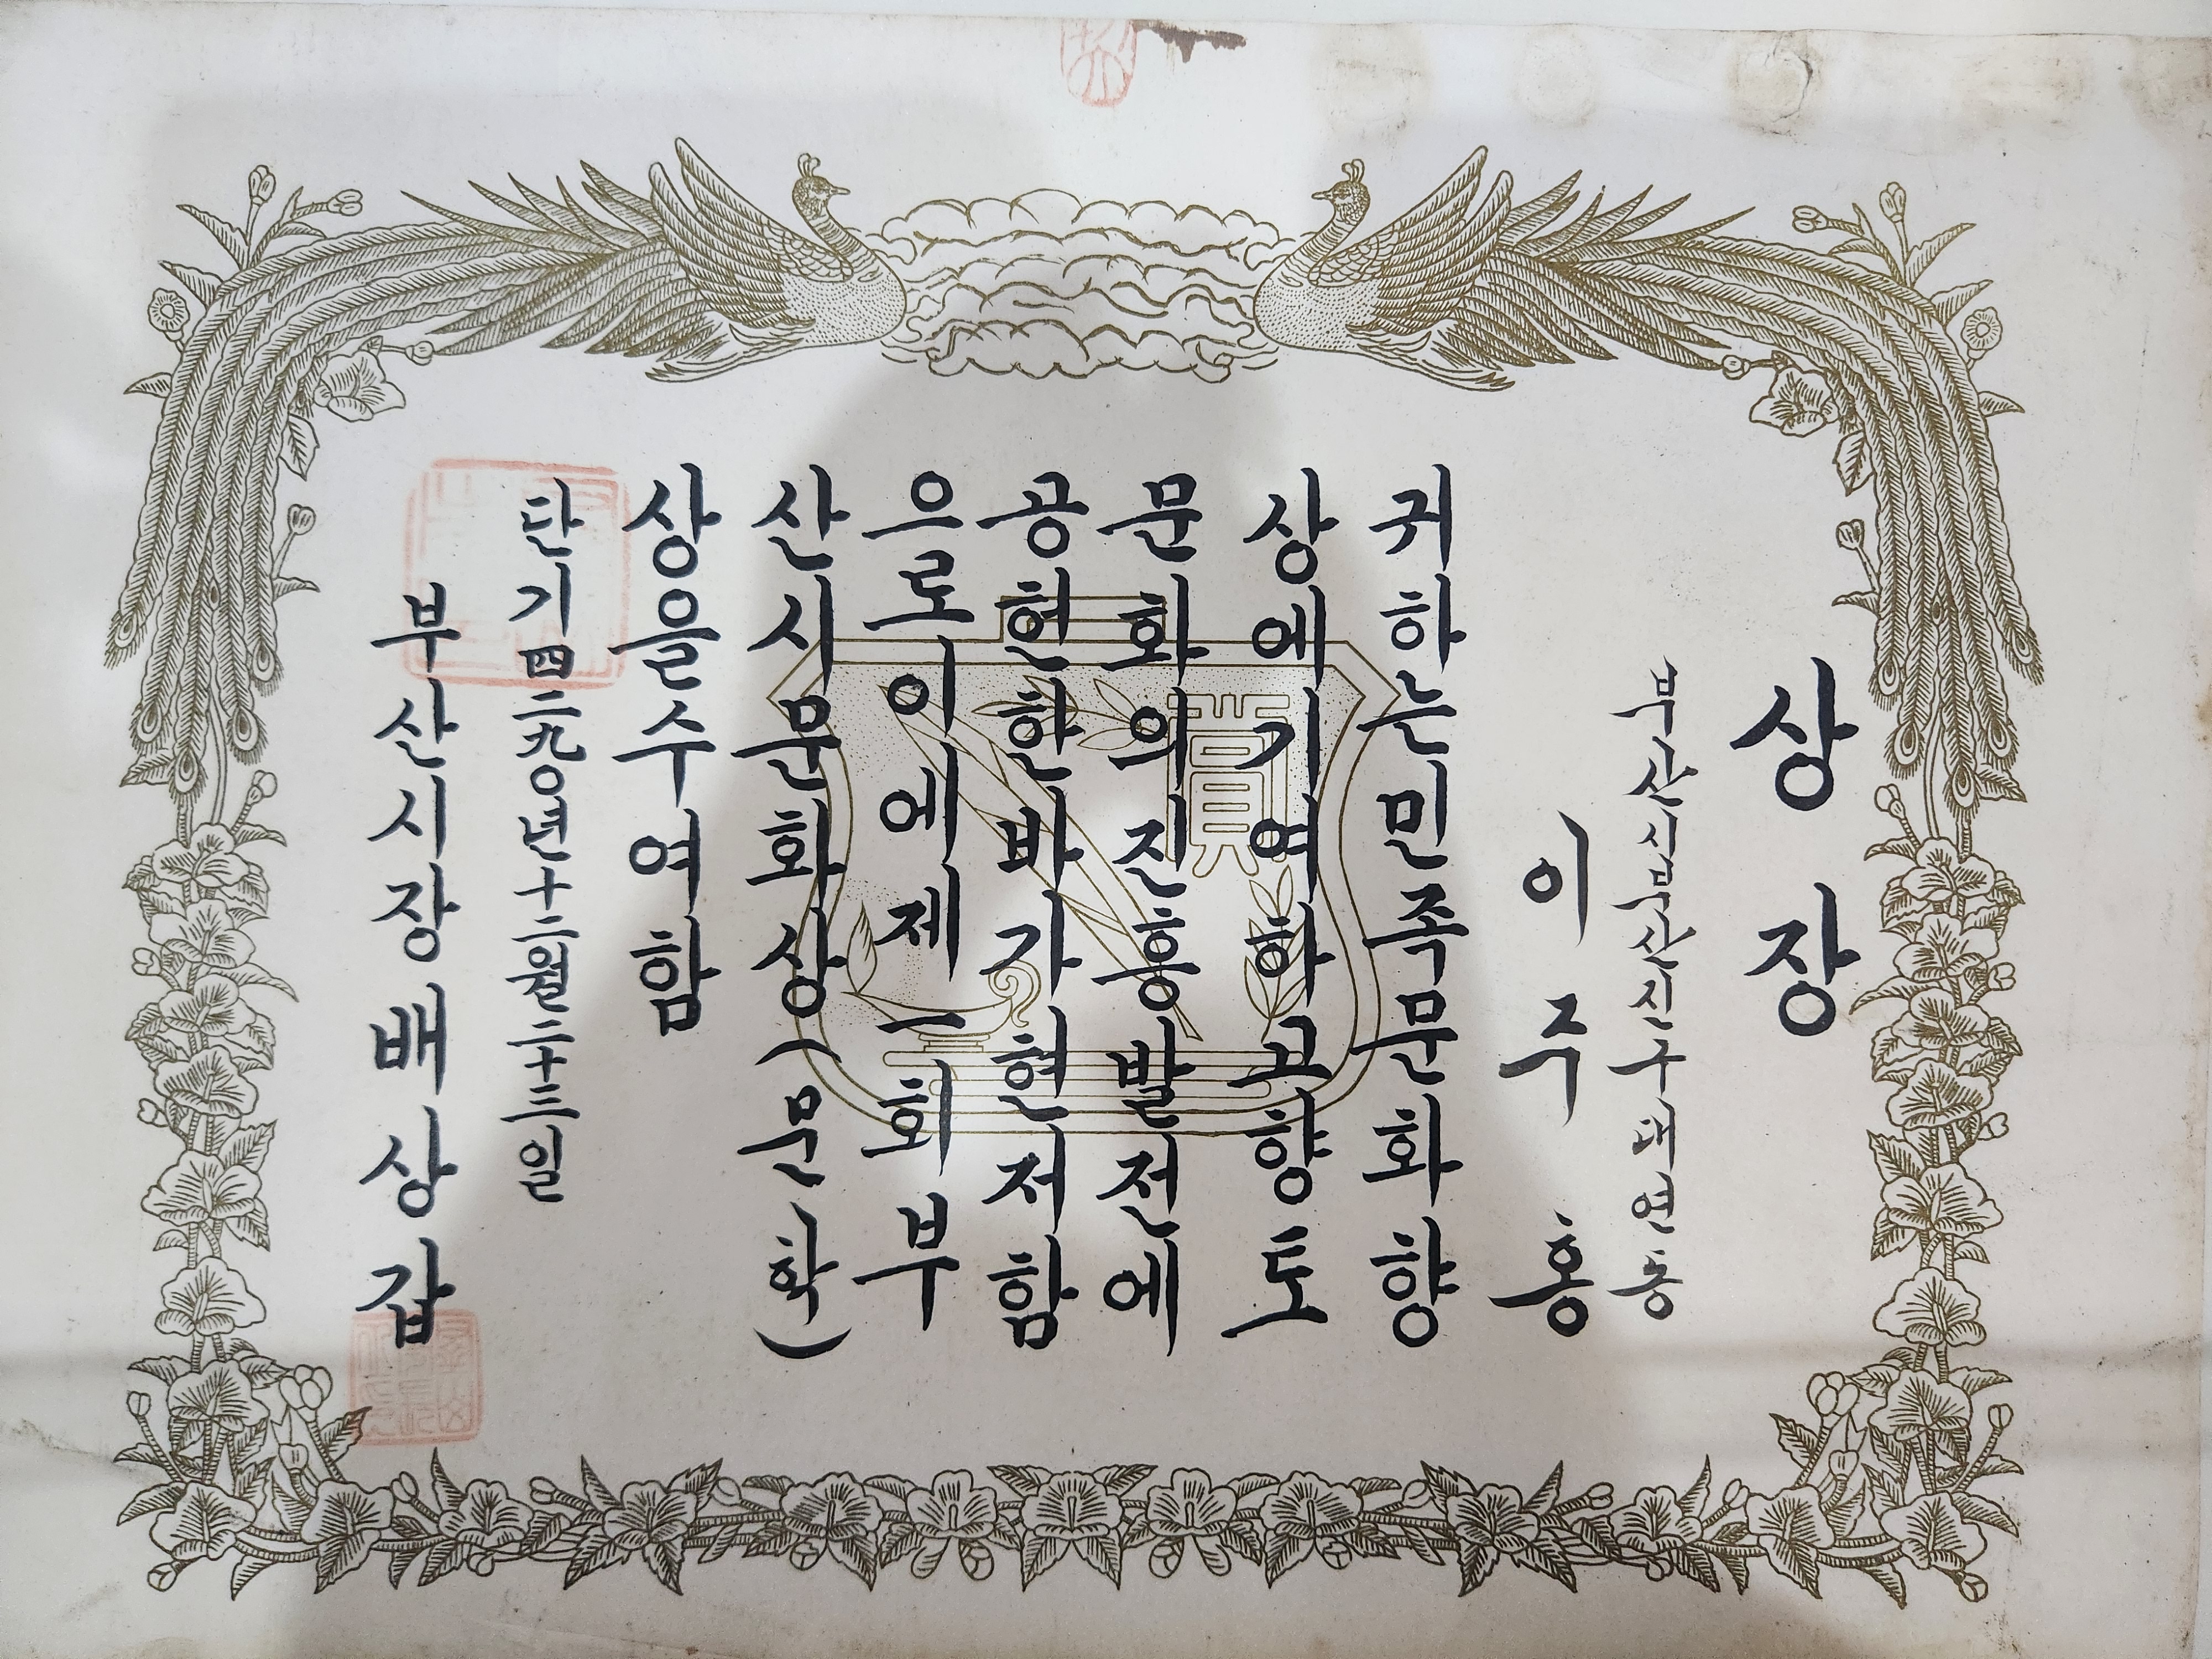 상장
부산시부산진구대연동
이주홍
귀하는민족문화향
상에기여하고향토
문화의진흥발전에
공헌한바가현저함
으로이에제一회부
산시문화상(문학)
상을수여함
단기四二九〇년十二월二十三일
부산시장배상갑
賞